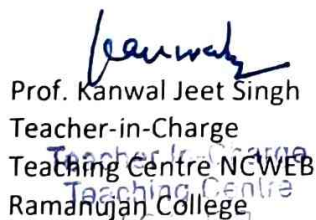 Kanwal
Prof. Kanwal Jeet Singh
Teacher-in-Charge
Teaching Centre NCWEB
Ramanujan College
Teacher In-Charge
Teaching Centre